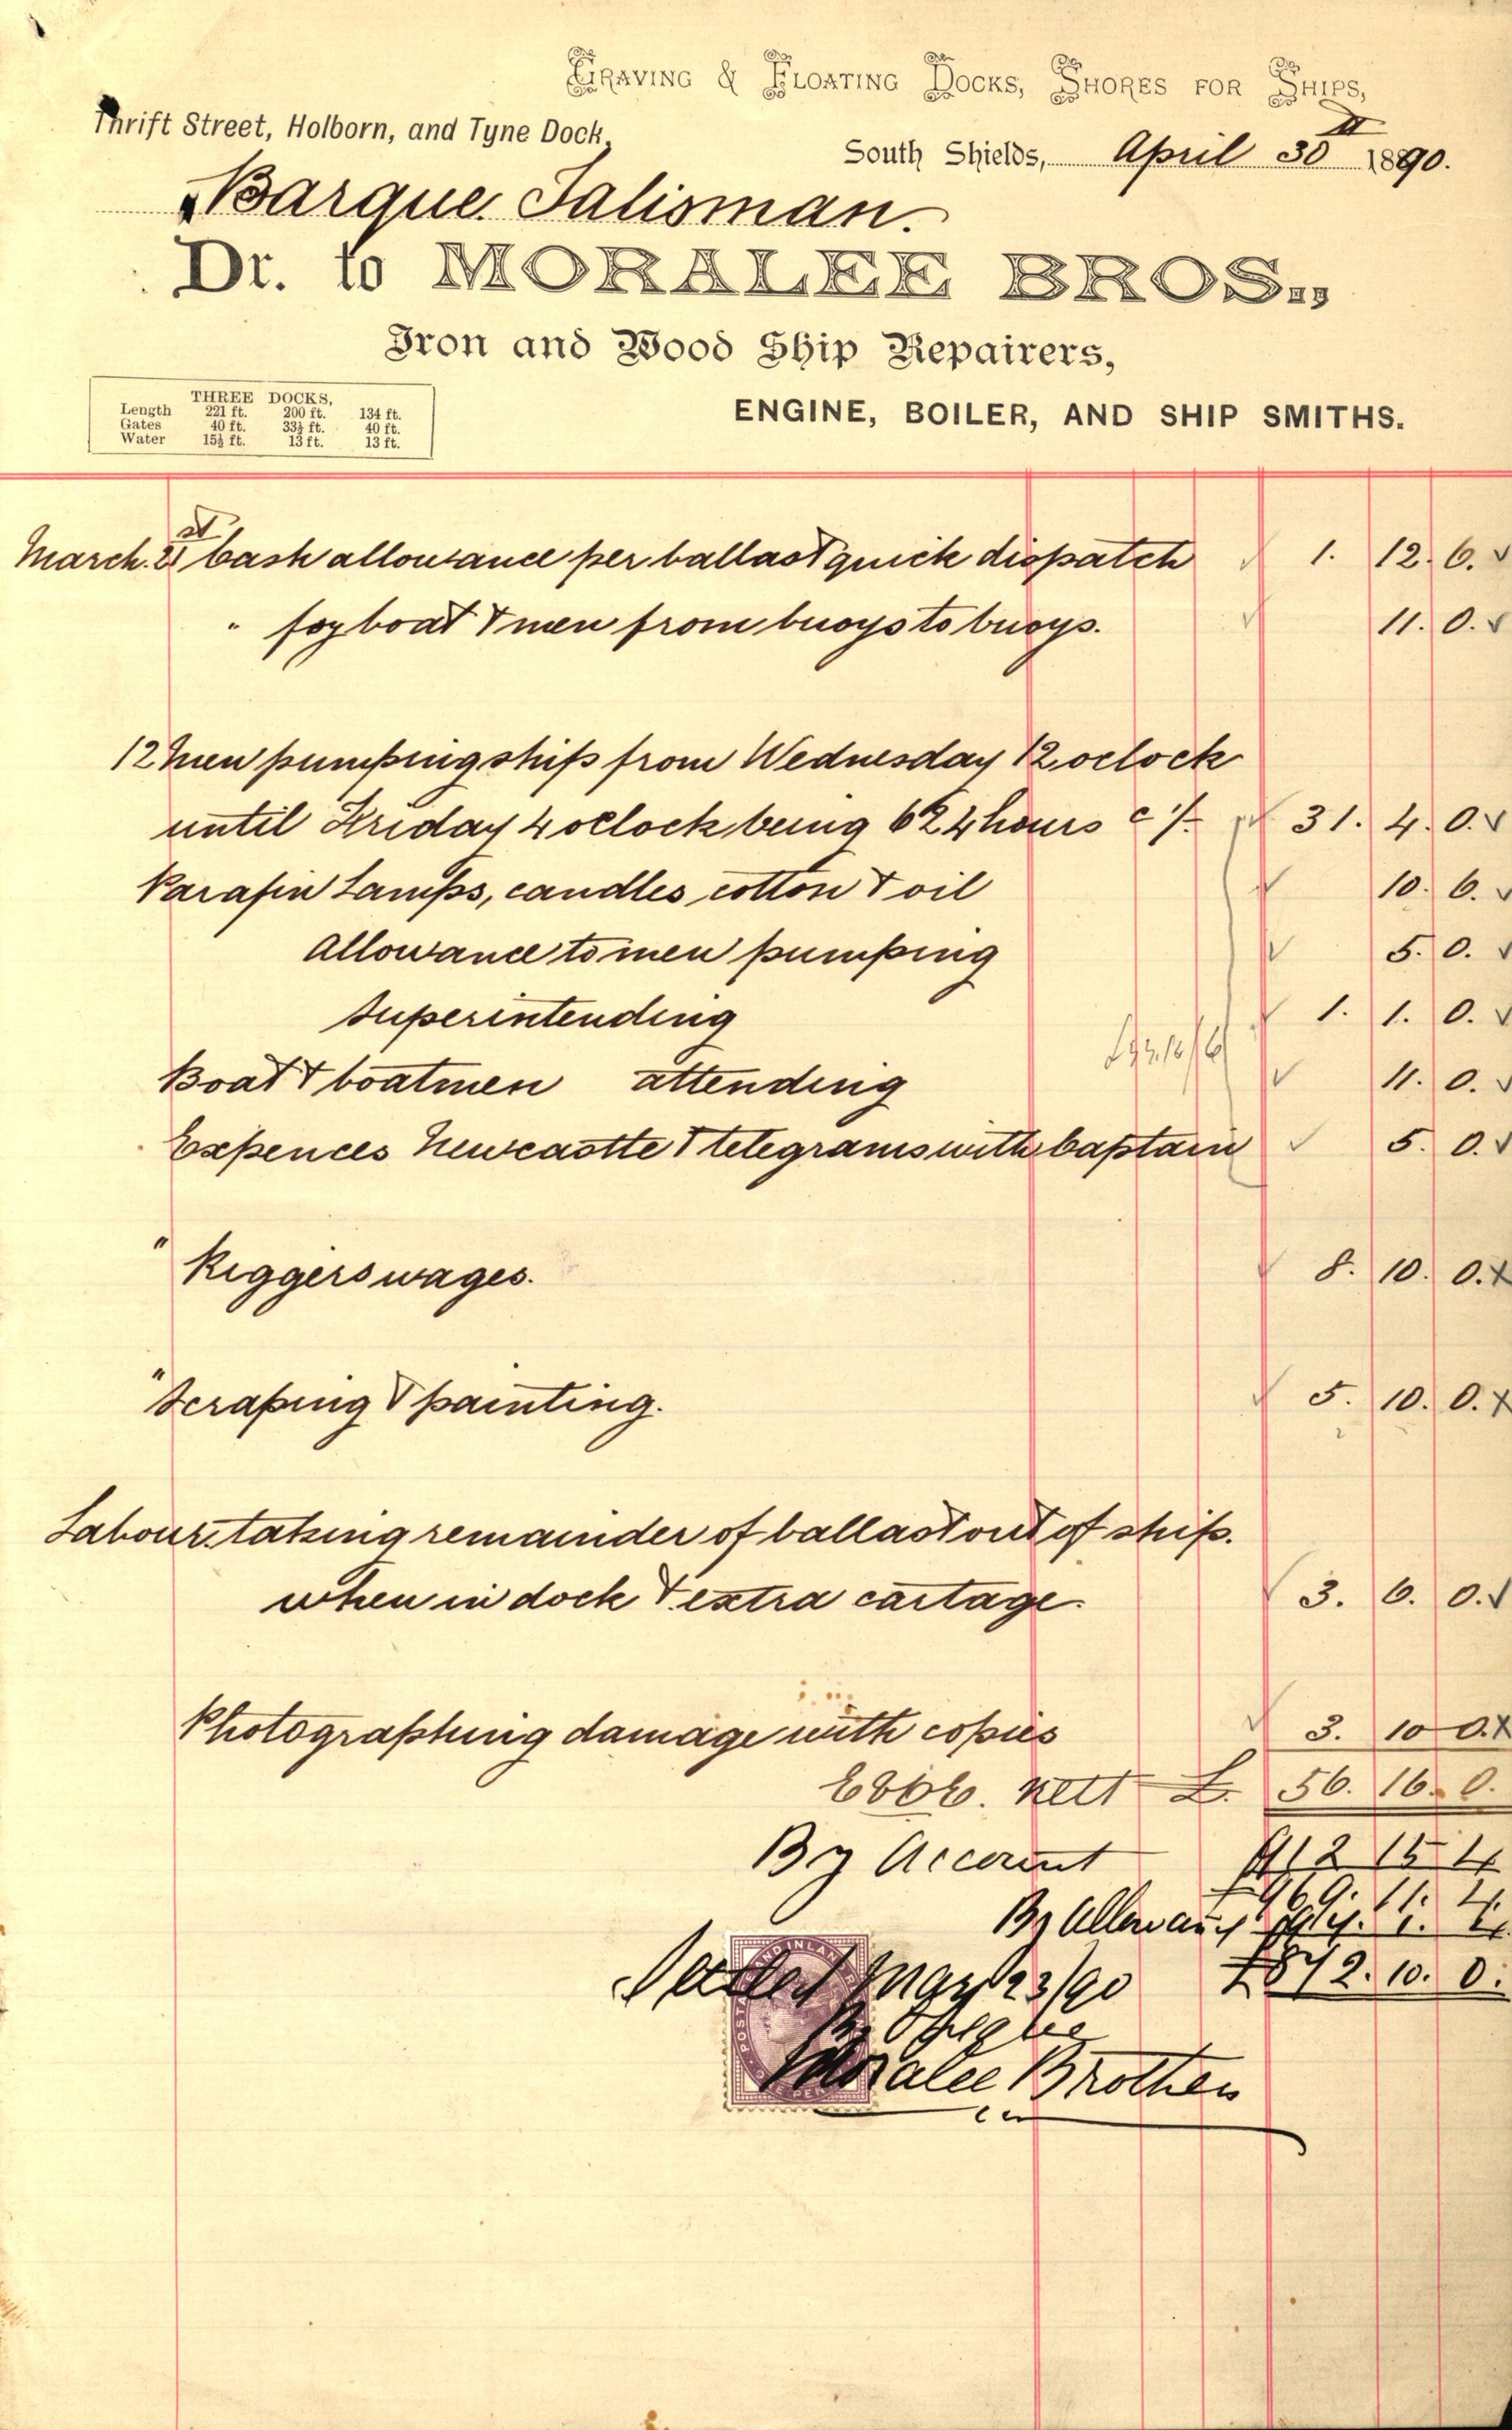 GRAVING & FLOATING DOCKS, SHORES FOR SHIPS,
Thrift Street, Holborn, and Tyne Dock,
South Shields, April 30 1890.
Barque Talisman.
Dr. to MORALEE BROS.,
Iron and Wood Ship Repairers,
ENGINE, BOILER, AND SHIP SMITHS.
THREE DOCKS,
Length 221 ft. 200 ft. 134 ft.
Gates 40 ft. 33½ ft. 40 ft.
Water 15½ ft. 13 ft. 13 ft.
March 21st Cash allowance per ballast quick dispatch 1. 12. 6.
" foyboat & men from buoys to buoys. 11. 0.
12 Men pumping ship from Wednesday 12 oclock
until Friday 4 oclock being 624 hours @ 1/- 31. 4. 0.
Parafin Lamps, candles, cotton & oil 10. 6.
Allowance to men pumping 5. 0.
Superintending 1. 1. 0.
Boat & boatmen attending 11. 0.
Expences Newcastle & telegrams with Captain 5. 0.
" Riggers wages. 8. 10. 0.
" Scraping & painting. 5. 10. 0.
Labour, taking remainder of ballast out of ship.
when in dock & extra cartage. 3. 6. 0.
Photographing damage with copies 3. 10 0.
E&OE. Nett £ 56. 16. 0.
By Account 912 15 4
969. 11. 4.
By Allowance
£872. 10. 0.
Settled May 23/90
By Cheque
Moralee Brothers